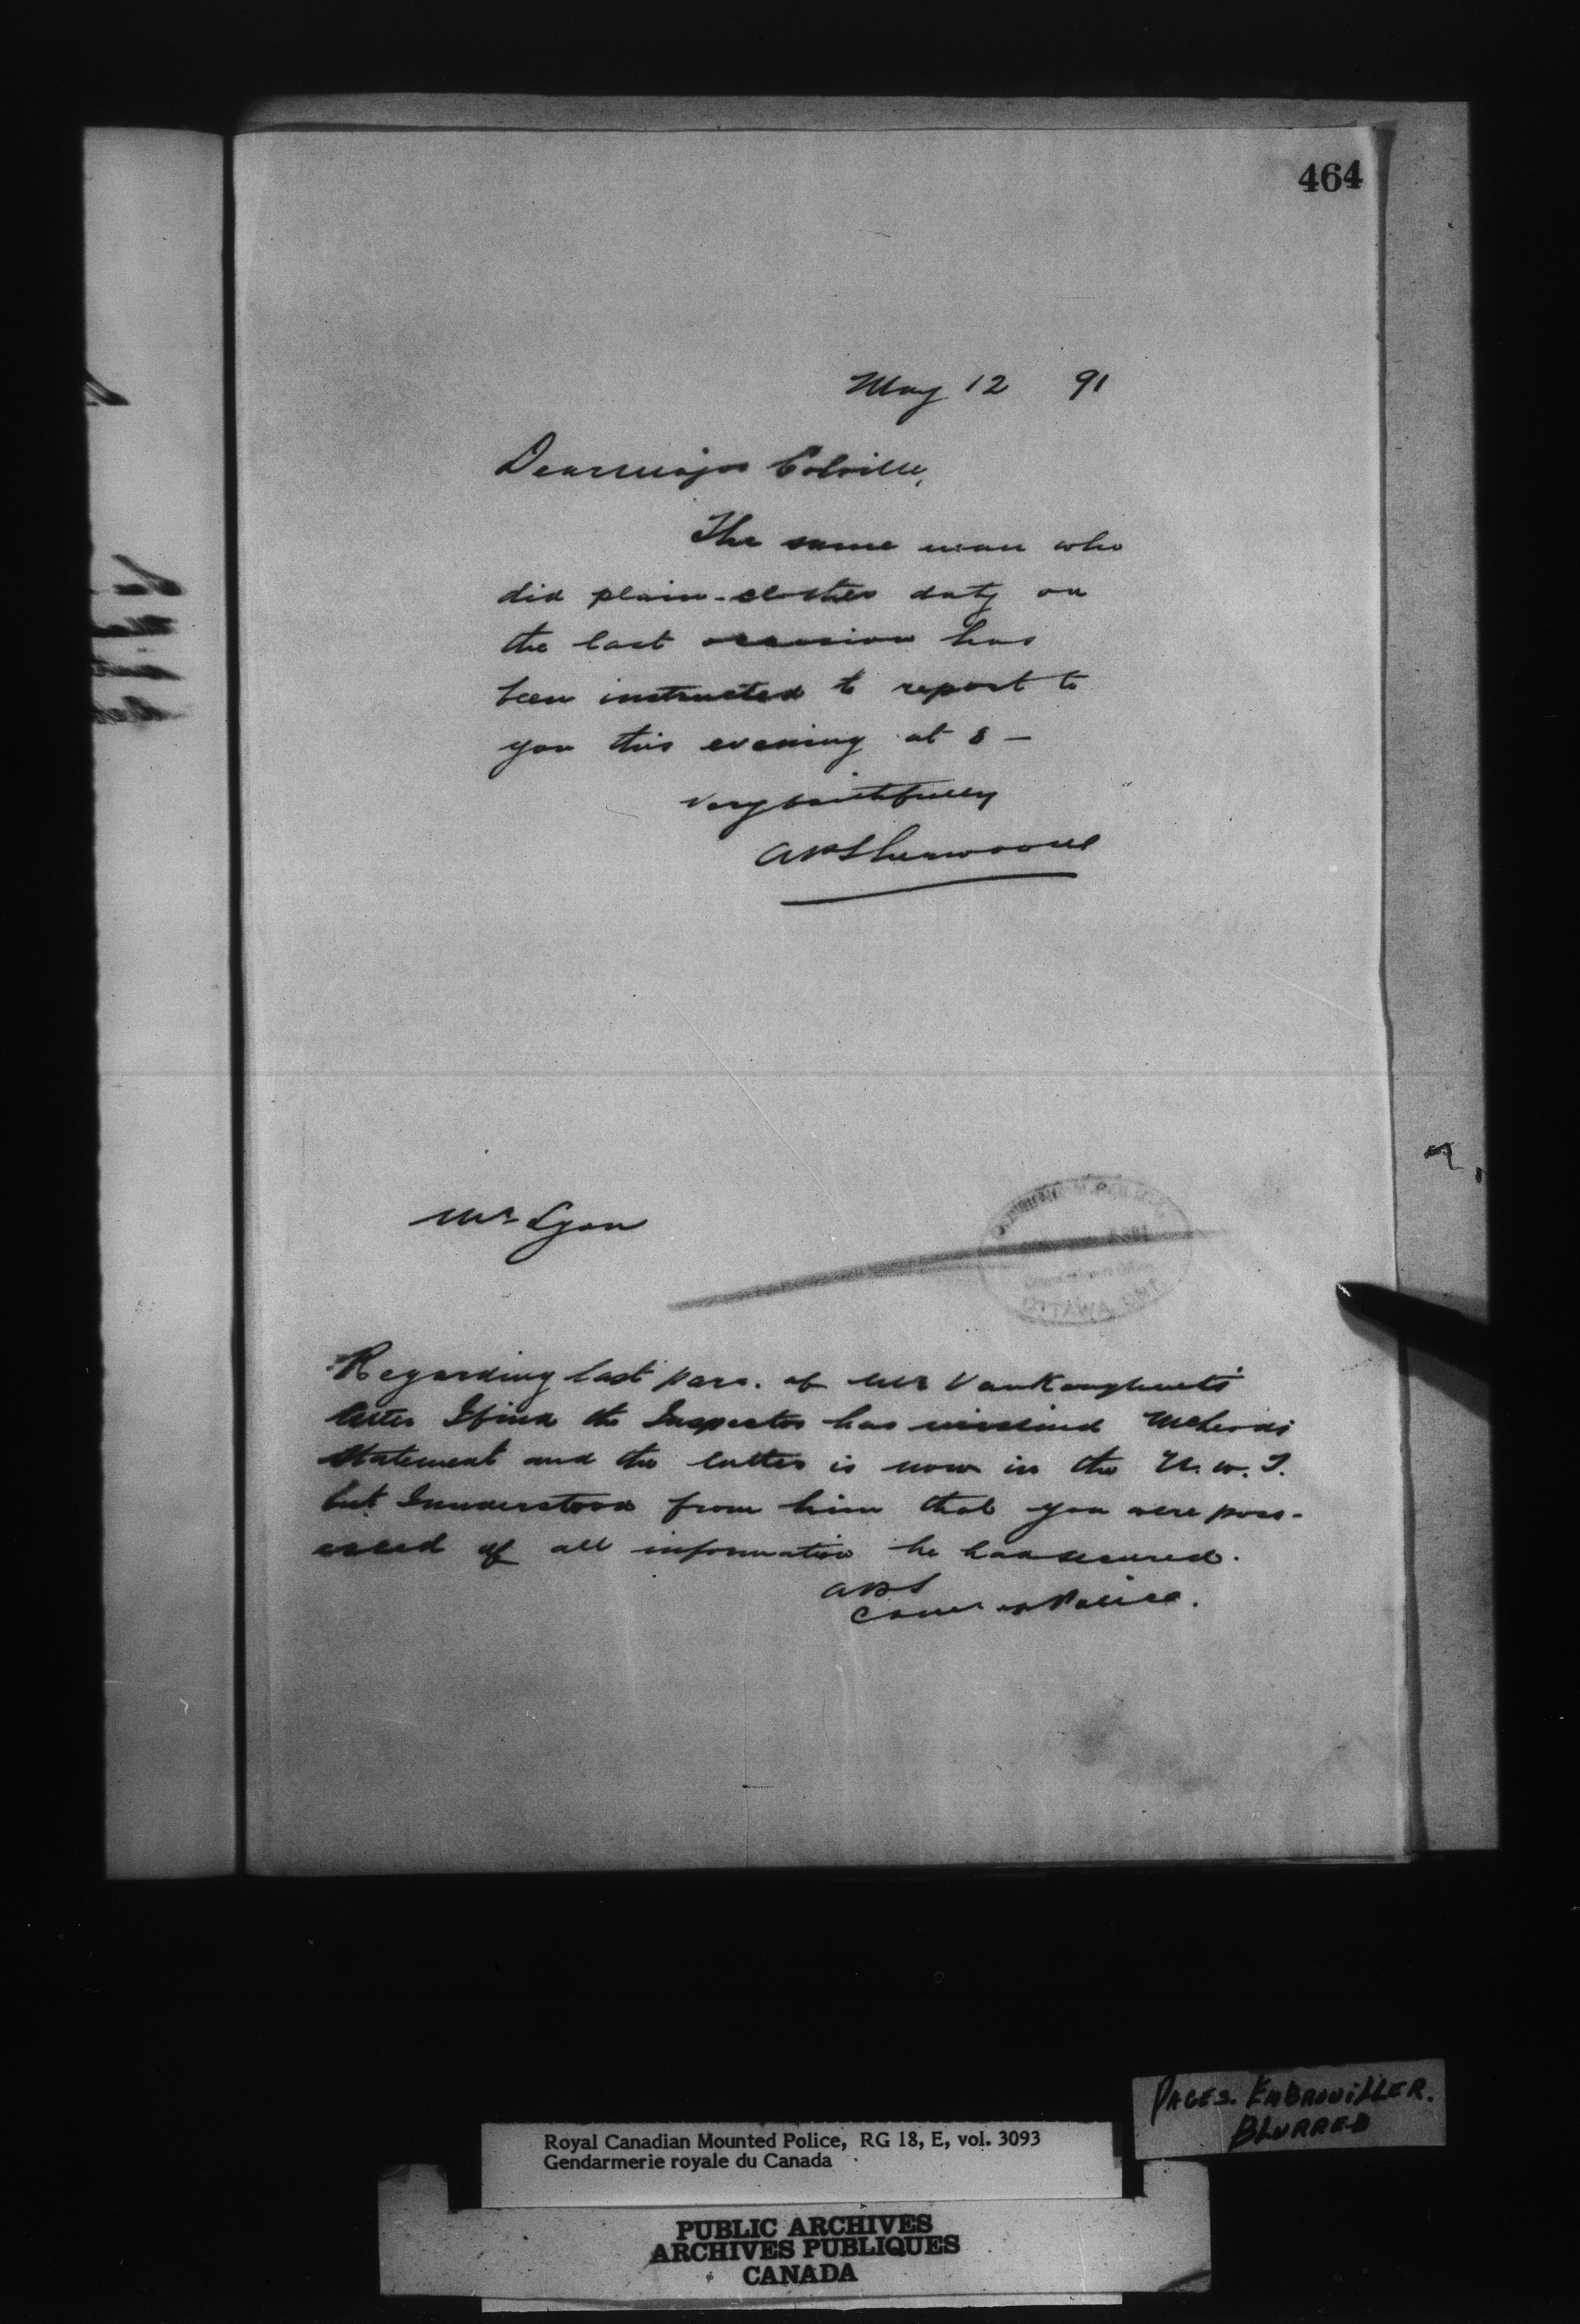 464
May 12 91
Dear Major Colville,
The same man who
did plain-clothes duty on
the last occasion has
been instructed to report to
you this evening at 8 —
Very faithfully
APSherwood
Mr Lyon
OTTAWA, ONT.
Regarding last para. of Mr VanKoughnet's
letter I find the Inspector has McLeods
statement and the latter is now in the N.W.T.
but I understood from him that you were poss-
essed of all information he had secured.
APS
Comr Police.
PAGES. EMBROUILLER.
BLURRED
Royal Canadian Mounted Police, RG 18, E, vol. 3093
Gendarmerie royale du Canada
PUBLIC ARCHIVES
ARCHIVES PUBLIQUES
CANADA